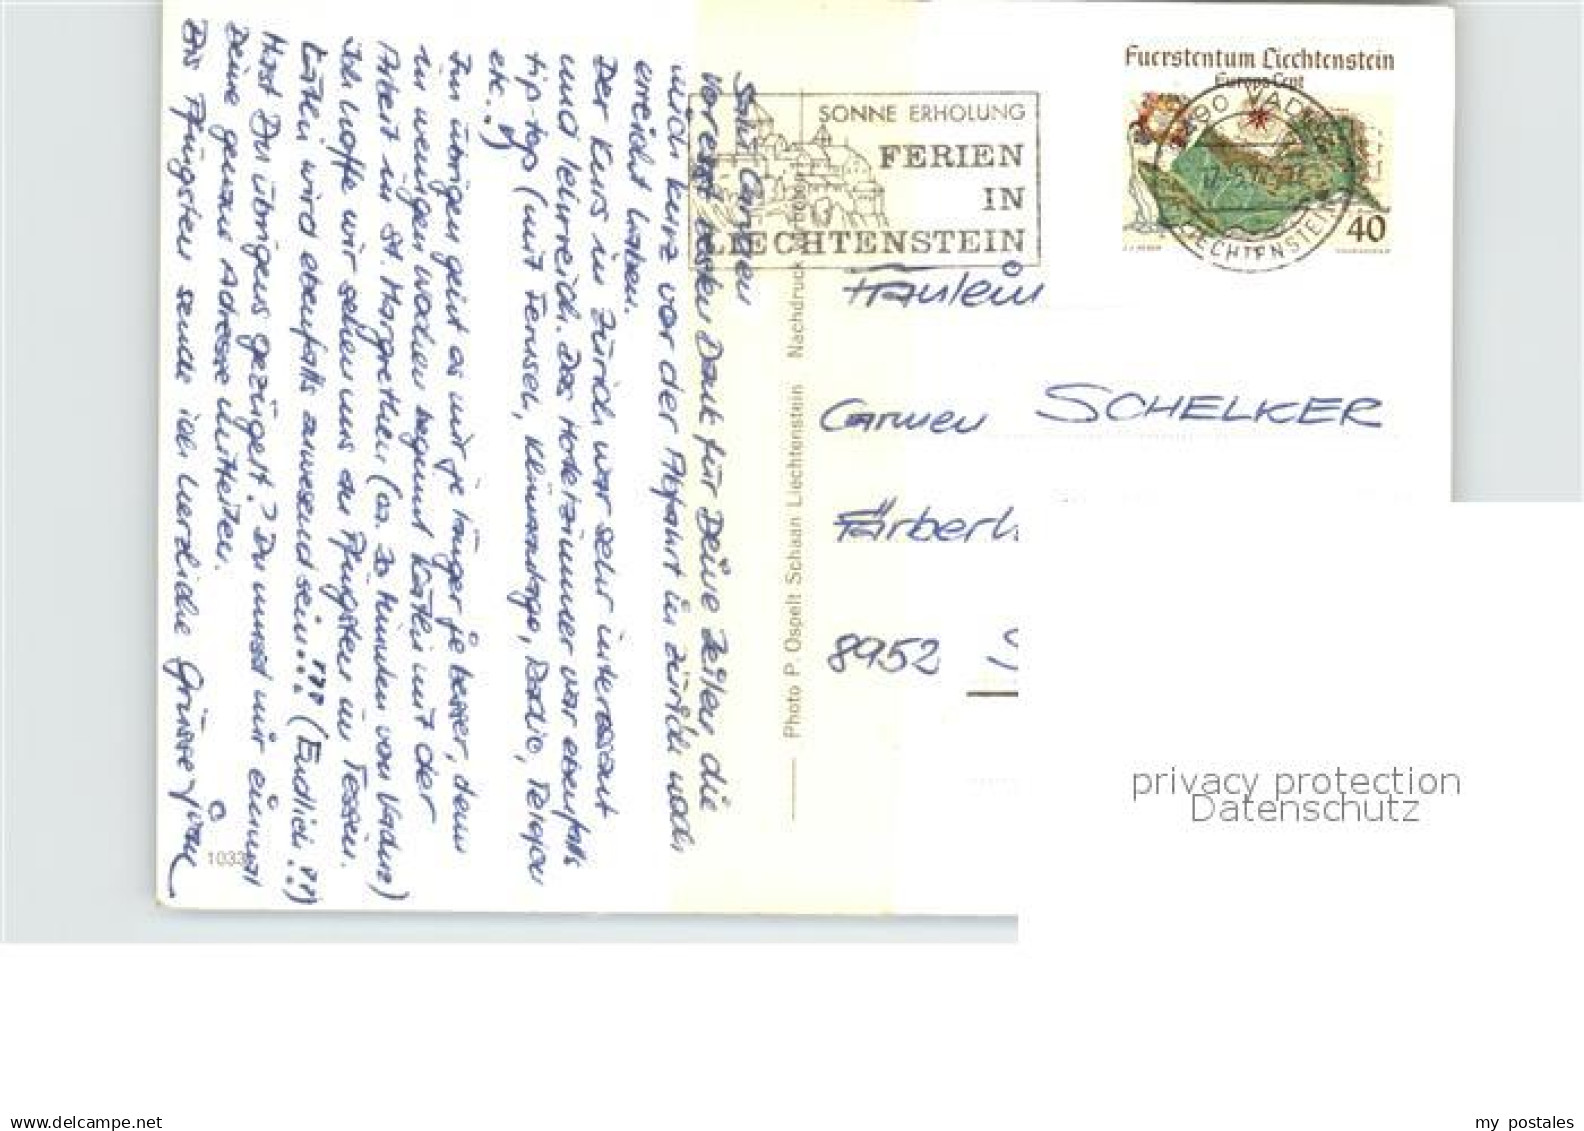 Salü Carmen
Vorerst besten Dank für Deine Zeilen die
mich kurz vor der Abfahrt in Zürich noch
erreicht haben.
Der Kurs in Zürich war sehr interessant
und lehrreich. Das Hotelzimmer war ebenfalls
tip-top (mit Fernseh, Klimaanlage, Radio, Telefon
etc..!)
Im übrigen geht es mir je länger je besser, denn
in wenigen Wochen beginnt Käthi mit der
Arbeit in St. Margrethen (ca. 20 Minuten von Vaduz)
Ich hoffe wir sehen uns an Pfingsten im Tessin.
Käthi wird ebenfalls anwesend sein..!!! (Endlich!!!)
Hast Du übrigens gezügelt? Du musst mir einmal
Deine genaue Adresse mitteilen.
Bis Pfingsten sende ich herzliche Grüsse
1033
Photo P. Ospelt Schaan Liechtenstein Nachdruck verboten
SONNE ERHOLUNG
FERIEN
IN
LIECHTENSTEIN
Fuerstentum Liechtenstein
Europa Cept
40
9490 VADUZ
LIECHTENSTEIN
Fräulein
Carmen SCHELKER
Färberh
8952
privacy protection
Datenschutz
www.delcampe.net
my_postales